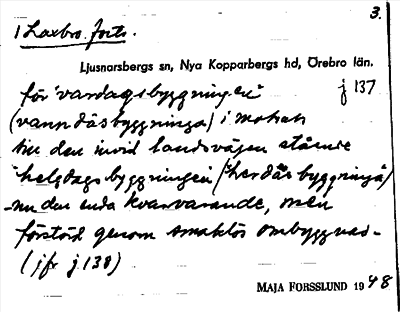 3.
1 Laxbro. forts.
Ljusnarsbergs sn, Nya Kopparbergs hd, Örebro län.
för "vardagsbyggningen" j 137
(vanndäsbyggninga) i motsats
till den invid landsvägen stående
"helgdagsbyggningen" ("herdäs byggninga)
- nu den enda kvarvarande, men
förstörd genom smaklös ombyggnad -
(jfr j 138)
MAJA FORSSLUND 1948